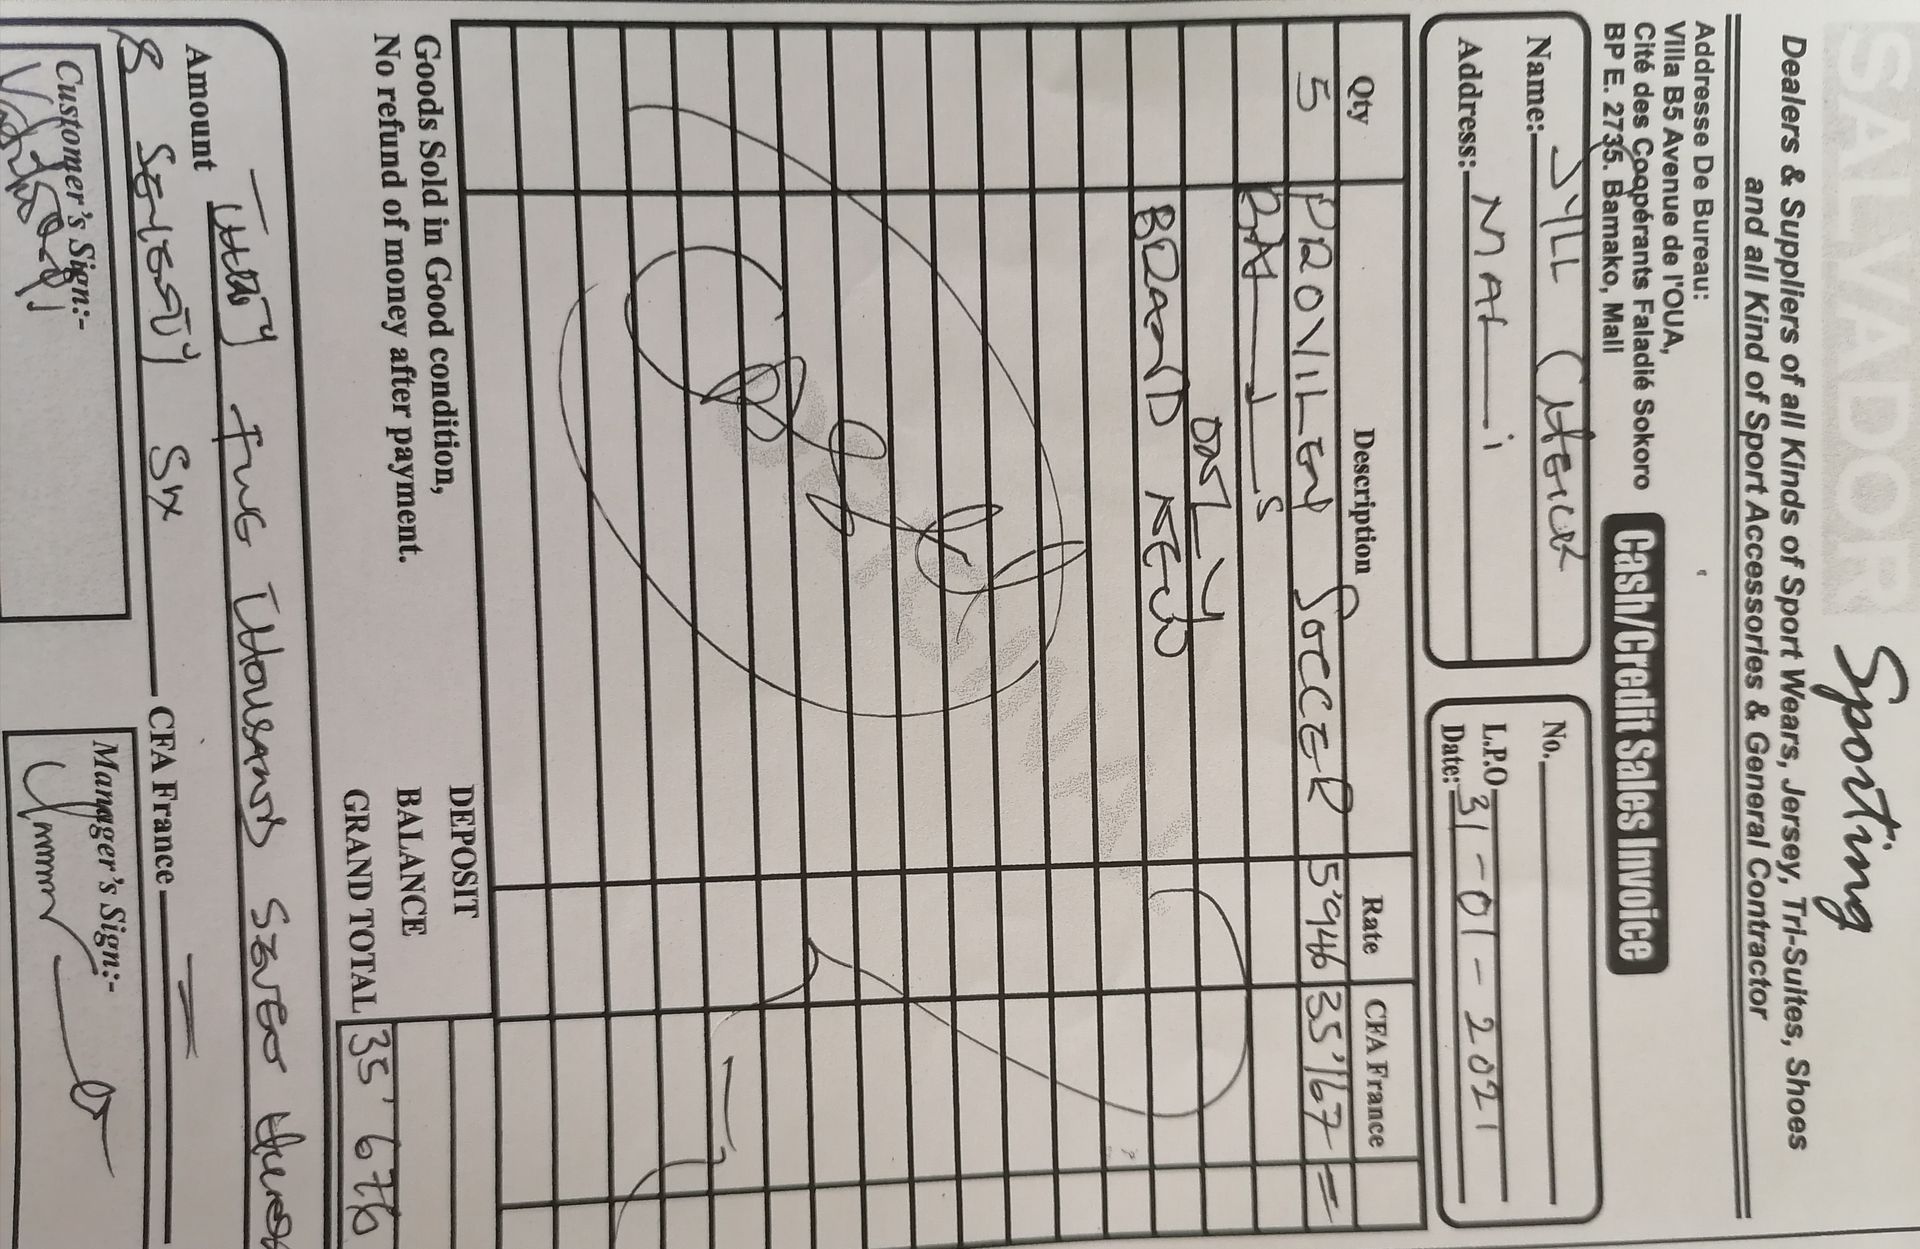 SALVADOR Sporting
Dealers & Suppliers of all Kinds of Sport Wears, Jersey, Tri-Suites, Shoes
and all Kind of Sport Accessories & General Contractor
Addresse De Bureau:
Villa B5 Avenue de l'OUA,
Cité des Coopérants Faladié Sokoro
BP E. 2735. Bamako, Mali
Cash/Credit Sales Invoice
Name:- SYLL
Address:- MALi
No.
L.P.O
Date: 31-01-2021
Qty Description Rate CFA France
5 SOCCER 5'946 35'167=
BALLS
ONLY
BRAND NEW
Goods Sold in Good condition,
No refund of money after payment.
DEPOSIT
BALANCE
GRAND TOTAL 35'676
Amount THousAND
& SEVENTY Six CFA France
Customer's Sign:-
Manager's Sign:-